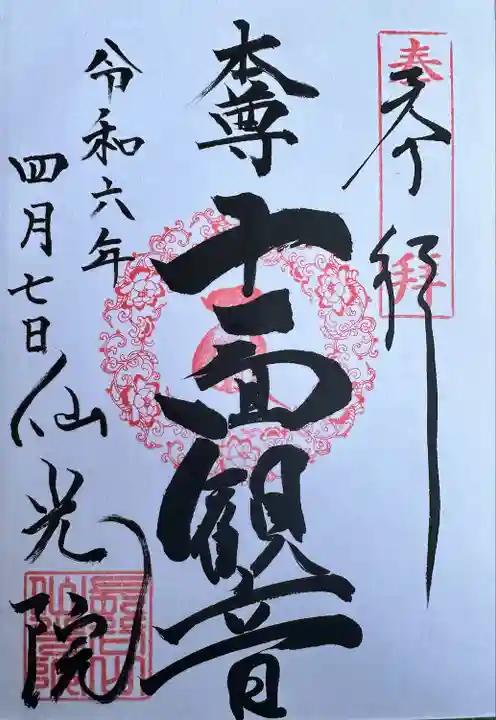 奉拝
奉行
本尊
十一面観音
令和六年
四月七日
仙光院